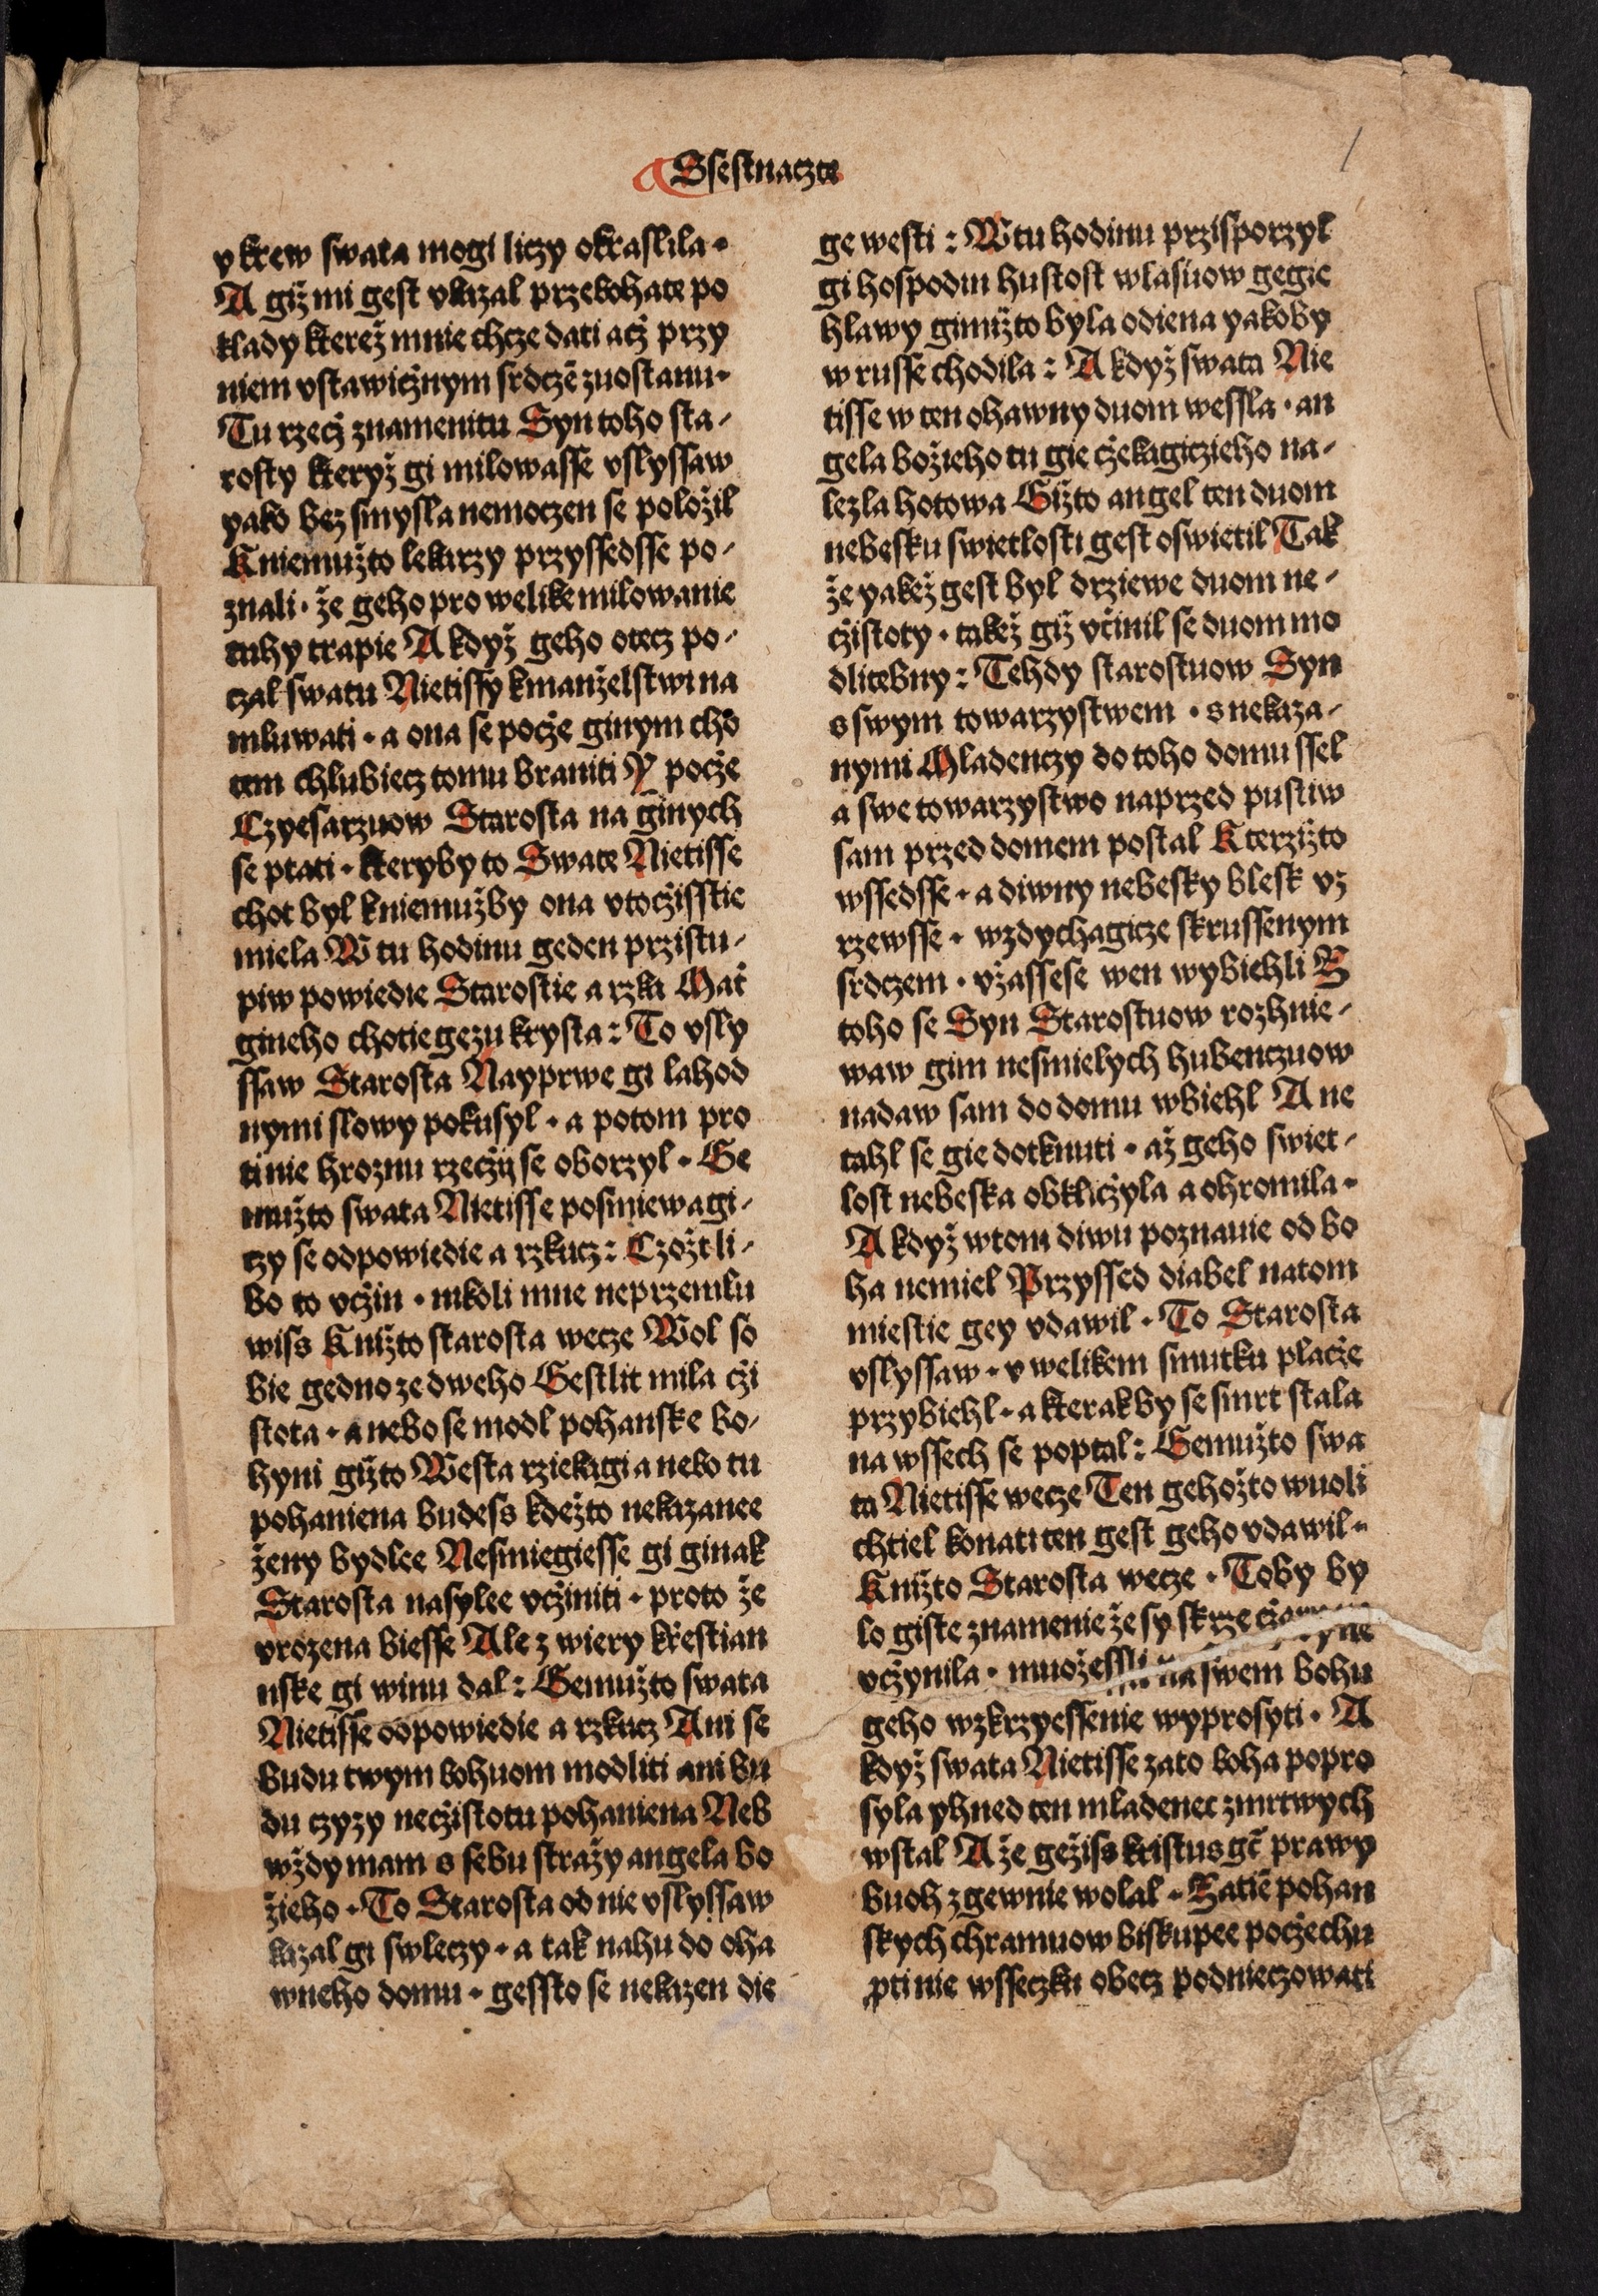 Ssestnaczte
y krew swata mogi liczy okrasslila •
A giž mi gest vkazal przebohate po
klady kterež mnie chcze dati acž przy
niem vstawicžnym srdczē zuostanu •
Tu rzecž znamenitu Syn toho sta⸗
rosty kteryž gi milowasse vslyssaw
yako bez smysla nemoczen se položil
K niemužto lekarzy przyssedsse po⸗
znali • že geho pro welike milowanie
tuhy trapie A když geho otecz po⸗
czal swatu Nietissy kmanželstwi na
mluwati • a ona se pocže ginym cho
tem chlubiecz tomu braniti Y pocže
Czyesarzuow Starosta na ginych
se ptati • kteryby to Swate Nietisse
chot byl kniemužby ona vtocžisstie
miela W tu hodinu geden przistu⸗
piw powiedie Starostie a rzka Mat
gineho chotie gezu krysta : To vsly
ssaw Starosta Nayprwe gi lahod
nymi slowy pokusyl • a potom pro
ti nie hroznu rzecžij se oborzyl • Ge
mužto swata Nietisse posmiewagi⸗
czy se odpowiedie a rzkucz : Czožtli⸗
bo to vcžin • nikoli mne neprzemlu
wiss Knižto starosta wecze Wol so
bie gedno ze dweho Gestlit mila cži
stota • a nebo se modl pohanske bo⸗
hyni gižto Westa rziekagi a nebo tu
pohaniena budess kdežto nekazanee
ženy bydlee Nesmiegiesse gi ginak
Starosta nasylee vcžiniti • proto že
vrozena biesse Ale z wiery křestian
nske gi winu dal : Gemužto swata
Nietisse odpowiedie a rzkucz Ani se
budu twym bohuom modliti ani bu
du czyzy necžistotu pohaniena Neb
wždy mam s sebu stražy angela bo
žieho • To Starosta od nie vslyssaw
kazal gi swleczy • a tak nahu do oha
wneho domu • gessto se nekazen die
ge westi : W tu hodinu przisporzyl
gi hospodin hustost wlasuow gegie
hlawy gimižto byla odiena yakoby
w russe chodila : A když swata Nie
tisse w ten ohawny duom wessla • an
gela božieho tu gie cžekagiczieho na⸗
lezla hotowa Gižto angel ten duom
nebesku swietlosti gest oswietil Tak
že yakež gest byl drziewe duom ne⸗
cžistoty • takež giž vcžinil se duom mo
dlitebny : Tehdy starostuow Syn
s swym towarzystwem • s nekaza⸗
nymi Mladenczy do toho domu ssel
a swe towarzystwo naprzed pustiw
sam przed domem postal Kterzižto
wssedsse • a diwny nebesky blesk vz
rzewsse • wzdychagicze skrussenym
srdczem • vžassese wen wybiehli Z
toho se Syn Starostuow rozhnie⸗
waw gim nesmielych hubenczuow
nadaw sam do domu wbiehl A ne
tahl se gie dotknuti • až geho swiet⸗
lost nebeska obklicžyla a ohromila •
A když w tom diwu poznanie od bo
ha nemiel Przyssed diabel na tom
miestie gey vdawil • To Starosta
vslyssaw • v welikem smutku placže
przybiehl • a kterak by se smrt stala
na wssech se poptal : Gemužto swa
ta Nietisse wecze Ten gehožto wuoli
chtiel konati ten gest geho vdawil •
Knižto Starosta wecze • Toby by
lo giste znamenie že sy skrze
vcžynila • na swem bohu
geho wzkrzyessenie wyprosyti • A
když swata Nietisse zato boha popro
syla yhned ten mladenec z mrtwych
wstal A že gežiss kristus gt̄ prawy
buoh zgewnie wolal • Zatiē pohan
skych chramuow biskupee pocžechu
ꝓti nie wsseczku obecz podnieczowati